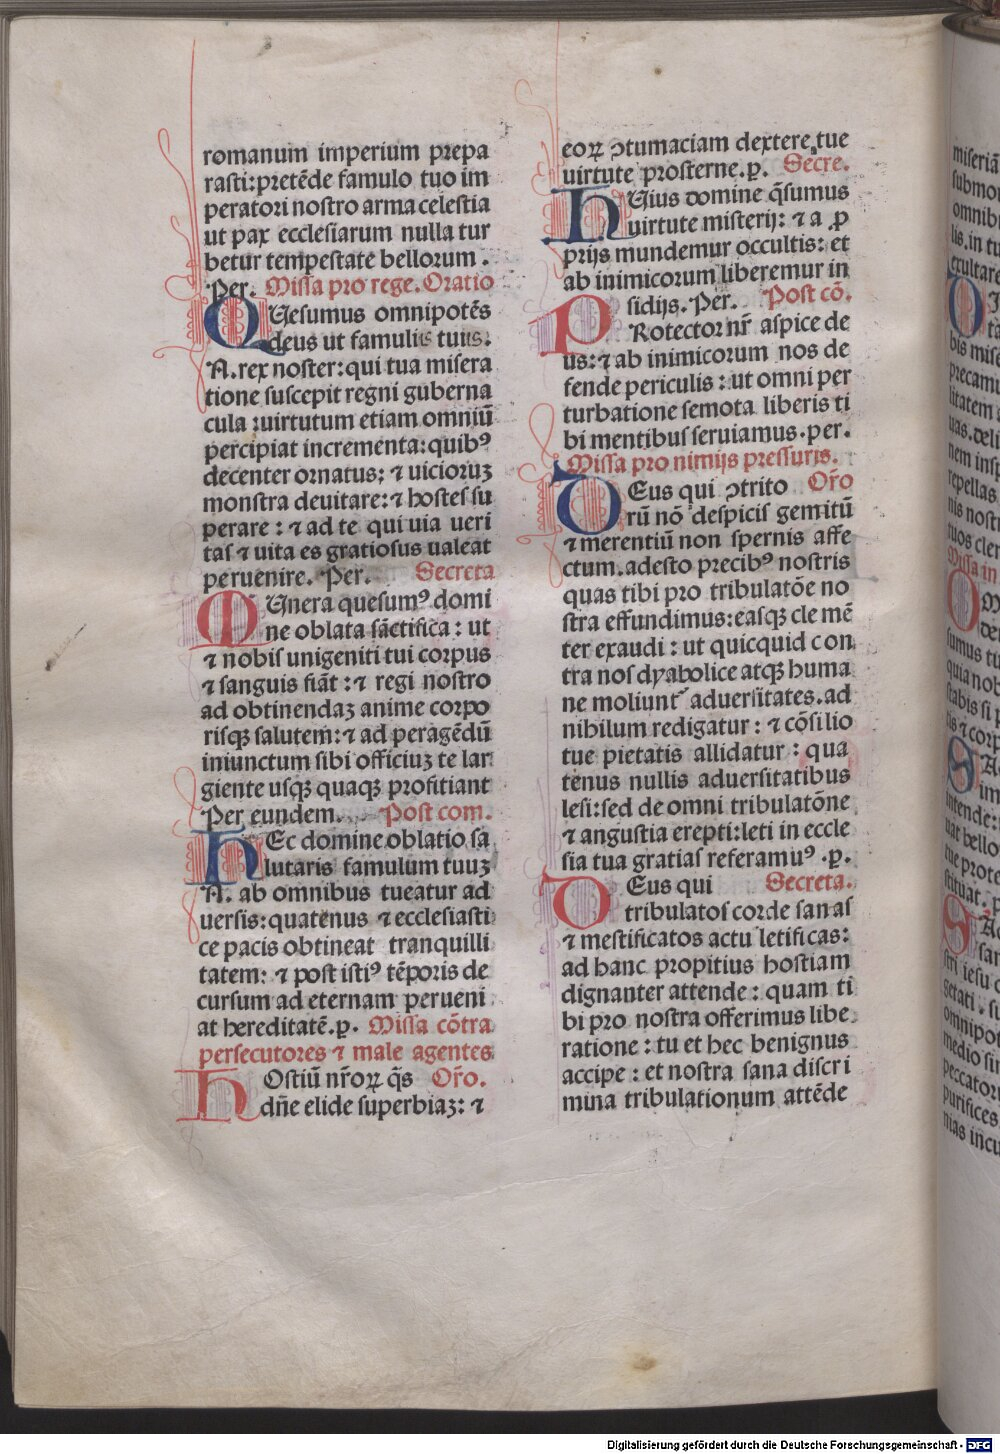 romanum imperium prepa
rasti:pretēde famulo tuo im
peratori nostro arma celestia
ut pax ecclesiarum nulla tur
betur tempestate bellorum.
Per. Missa pro rege. Oratio
QUesumus omnipotēs
deus ut famulis tuus.
N. rex noster: qui tua misera
tione suscepit regni guberna
cula :uirtutum etiam omniū
percipiat incrementa: quibꝰ
decenter ornatus; ⁊ uicioruꝫ
monstra deuitare: ⁊ hostes su
perare : ⁊ ad te qui uia ueri
tas ⁊ uita es gratiosus ualeat
peruenire. Per. Secreta
MUnera quesumꝰ domi
ne oblata sāctifica : ut
⁊ nobis unigeniti tui corpus
⁊ sanguis fiāt : ⁊ regi nostro
ad obtinendaꝫ anime corpo
risqꝫ salutem: ⁊ ad peragēdū
iniunctum sibi officiuꝫ te lar
giente usqꝫ quaqꝫ profitiant
Per eundem. Post com.
HEc domine oblatio sa
lutaris famulum tuuꝫ
N. ab omnibus tueatur ad
uersis: quatenus ⁊ ecclesiasti
ce pacis obtineat tranquilli
tatem: ⁊ post istiꝰ tēporis de
cursum ad eternam perueni
at hereditatē. p. Missa cōtra
persecutores ⁊ male agentes
HOstiū nr̄oꝝ q̄s Or̄o.
dn̄e elide superbiaꝫ: ⁊
eoꝝ ꝯtumaciam dextere tue
uirtute prosterne. p. Secre.
HUius domine q̄sumus
uirtute misterij: ⁊ a p
prijs mundemur occultis: et
ab inimicorum liberemur in
sidijs. Per. Post cō.
PRotector nr̄ aspice de
us: ⁊ ab inimicorum nos de
fende periculis : ut omni per
turbatione semota liberis ti
bi mentibus seruiamus. per.
Missa pro nimijs pressuris.
DEus qui ꝯtrito Or̄o
rū nō despicis gemitū
⁊ merentiū non spernis affe
ctum. adesto precibꝰ nostris
quas tibi pro tribulatōe no
stra effundimus: easqꝫ cle mē
ter exaudi : ut quicquid con
tra nos dyabolice atqꝫ huma
ne moliunt᷑ aduersitates. ad
nihilum redigatur : ⁊ cōsilio
tue pietatis allidatur : qua
tenus nullis aduersitatibus
lesi: sed de omni tribulatōne
⁊ angustia erepti: leti in eccle
sia tua gratias referamuꝰ . p.
DEus qui Secreta.
tribulatos corde sanas
⁊ mestificatos actu letificas:
ad hanc propitius hostiam
dignanter attende : quam ti
bi pro nostra offerimus libe
ratione : tu et hec benignus
accipe : et nostra sana discri
mina tribulationum attēde
Digitalisierung gefördert durch die Deutsche Forschungsgemeinschaft - DFG